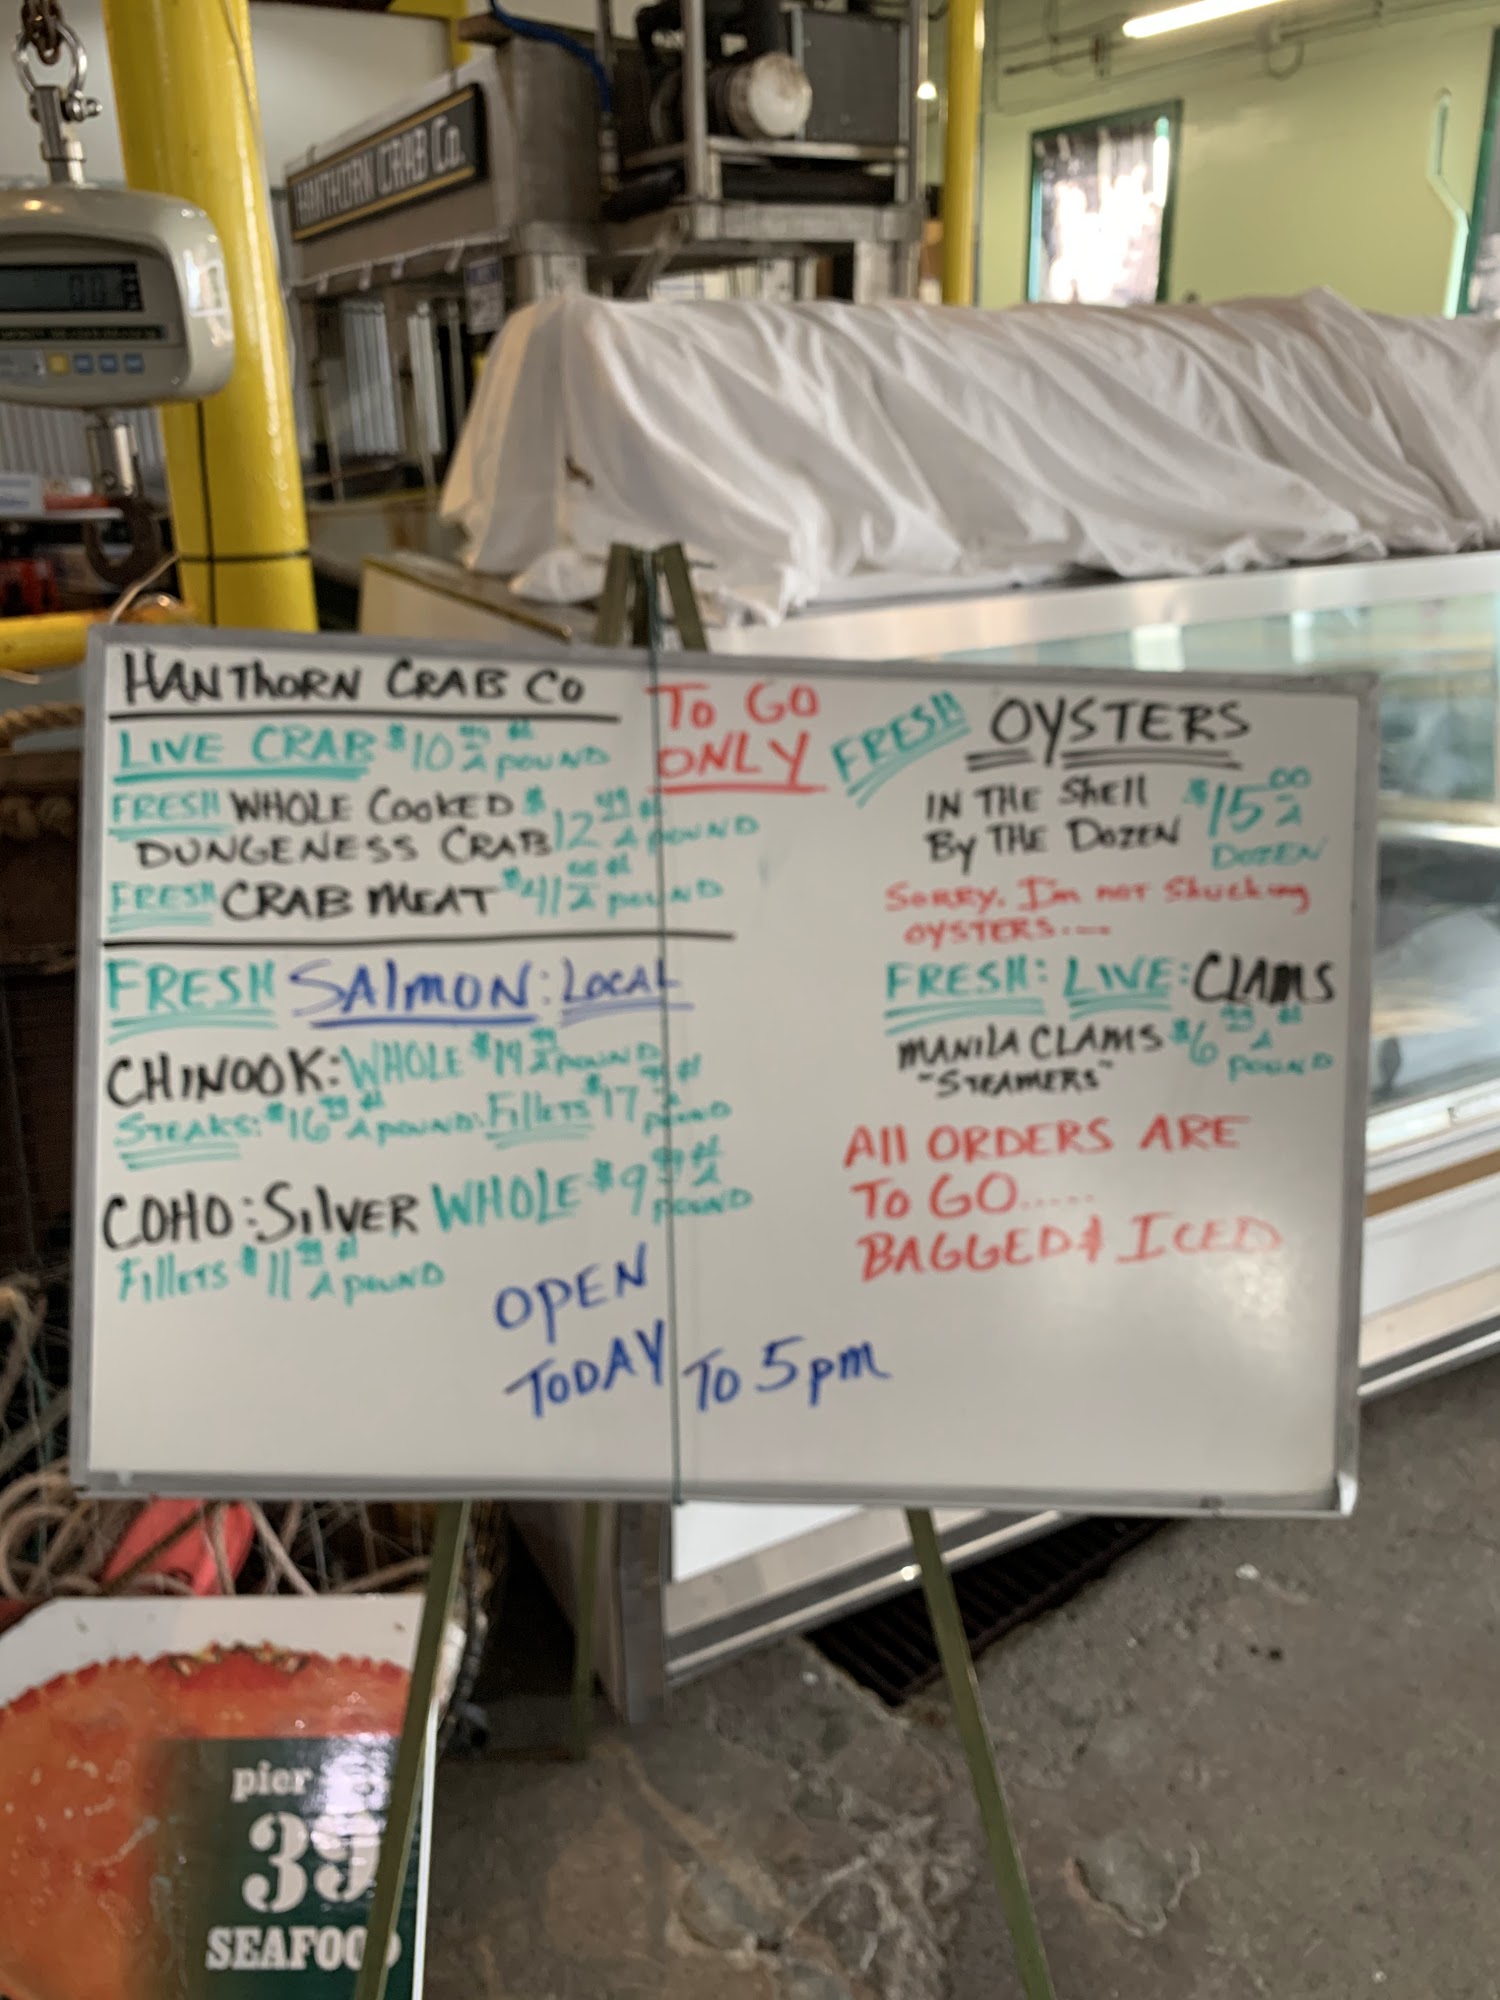 HANTHORN CRAB Co.
HANTHORN CRAB CO
LIVE CRAB $10 99 #1 A POUND
FRESH WHOLE COOKED $12 99 #1 A POUND
DUNGENESS CRAB
FRESH CRAB MEAT $41 00 #1 A POUND
FRESH SALMON: LOCAL
CHINOOK: WHOLE $14 99 A POUND
STEAKS: $16 99 #1 A POUND: FILLETS $17 99 #1 A POUND
COHO: SILVER WHOLE $9 99 #1 A POUND
FILLETS $11 99 #1 A POUND
OPEN
TODAY TO 5pm
TO GO
ONLY
FRESH OYSTERS
IN THE SHELL $15 00 A
BY THE DOZEN DOZEN
SORRY, I'm NOT Shucking
OYSTERS....
FRESH: LIVE: CLAMS
MANILA CLAMS $6 99 #1 A POUND
"STEAMERS"
All ORDERS ARE
TO GO.....
BAGGED & ICED
pier
39
SEAFOOD